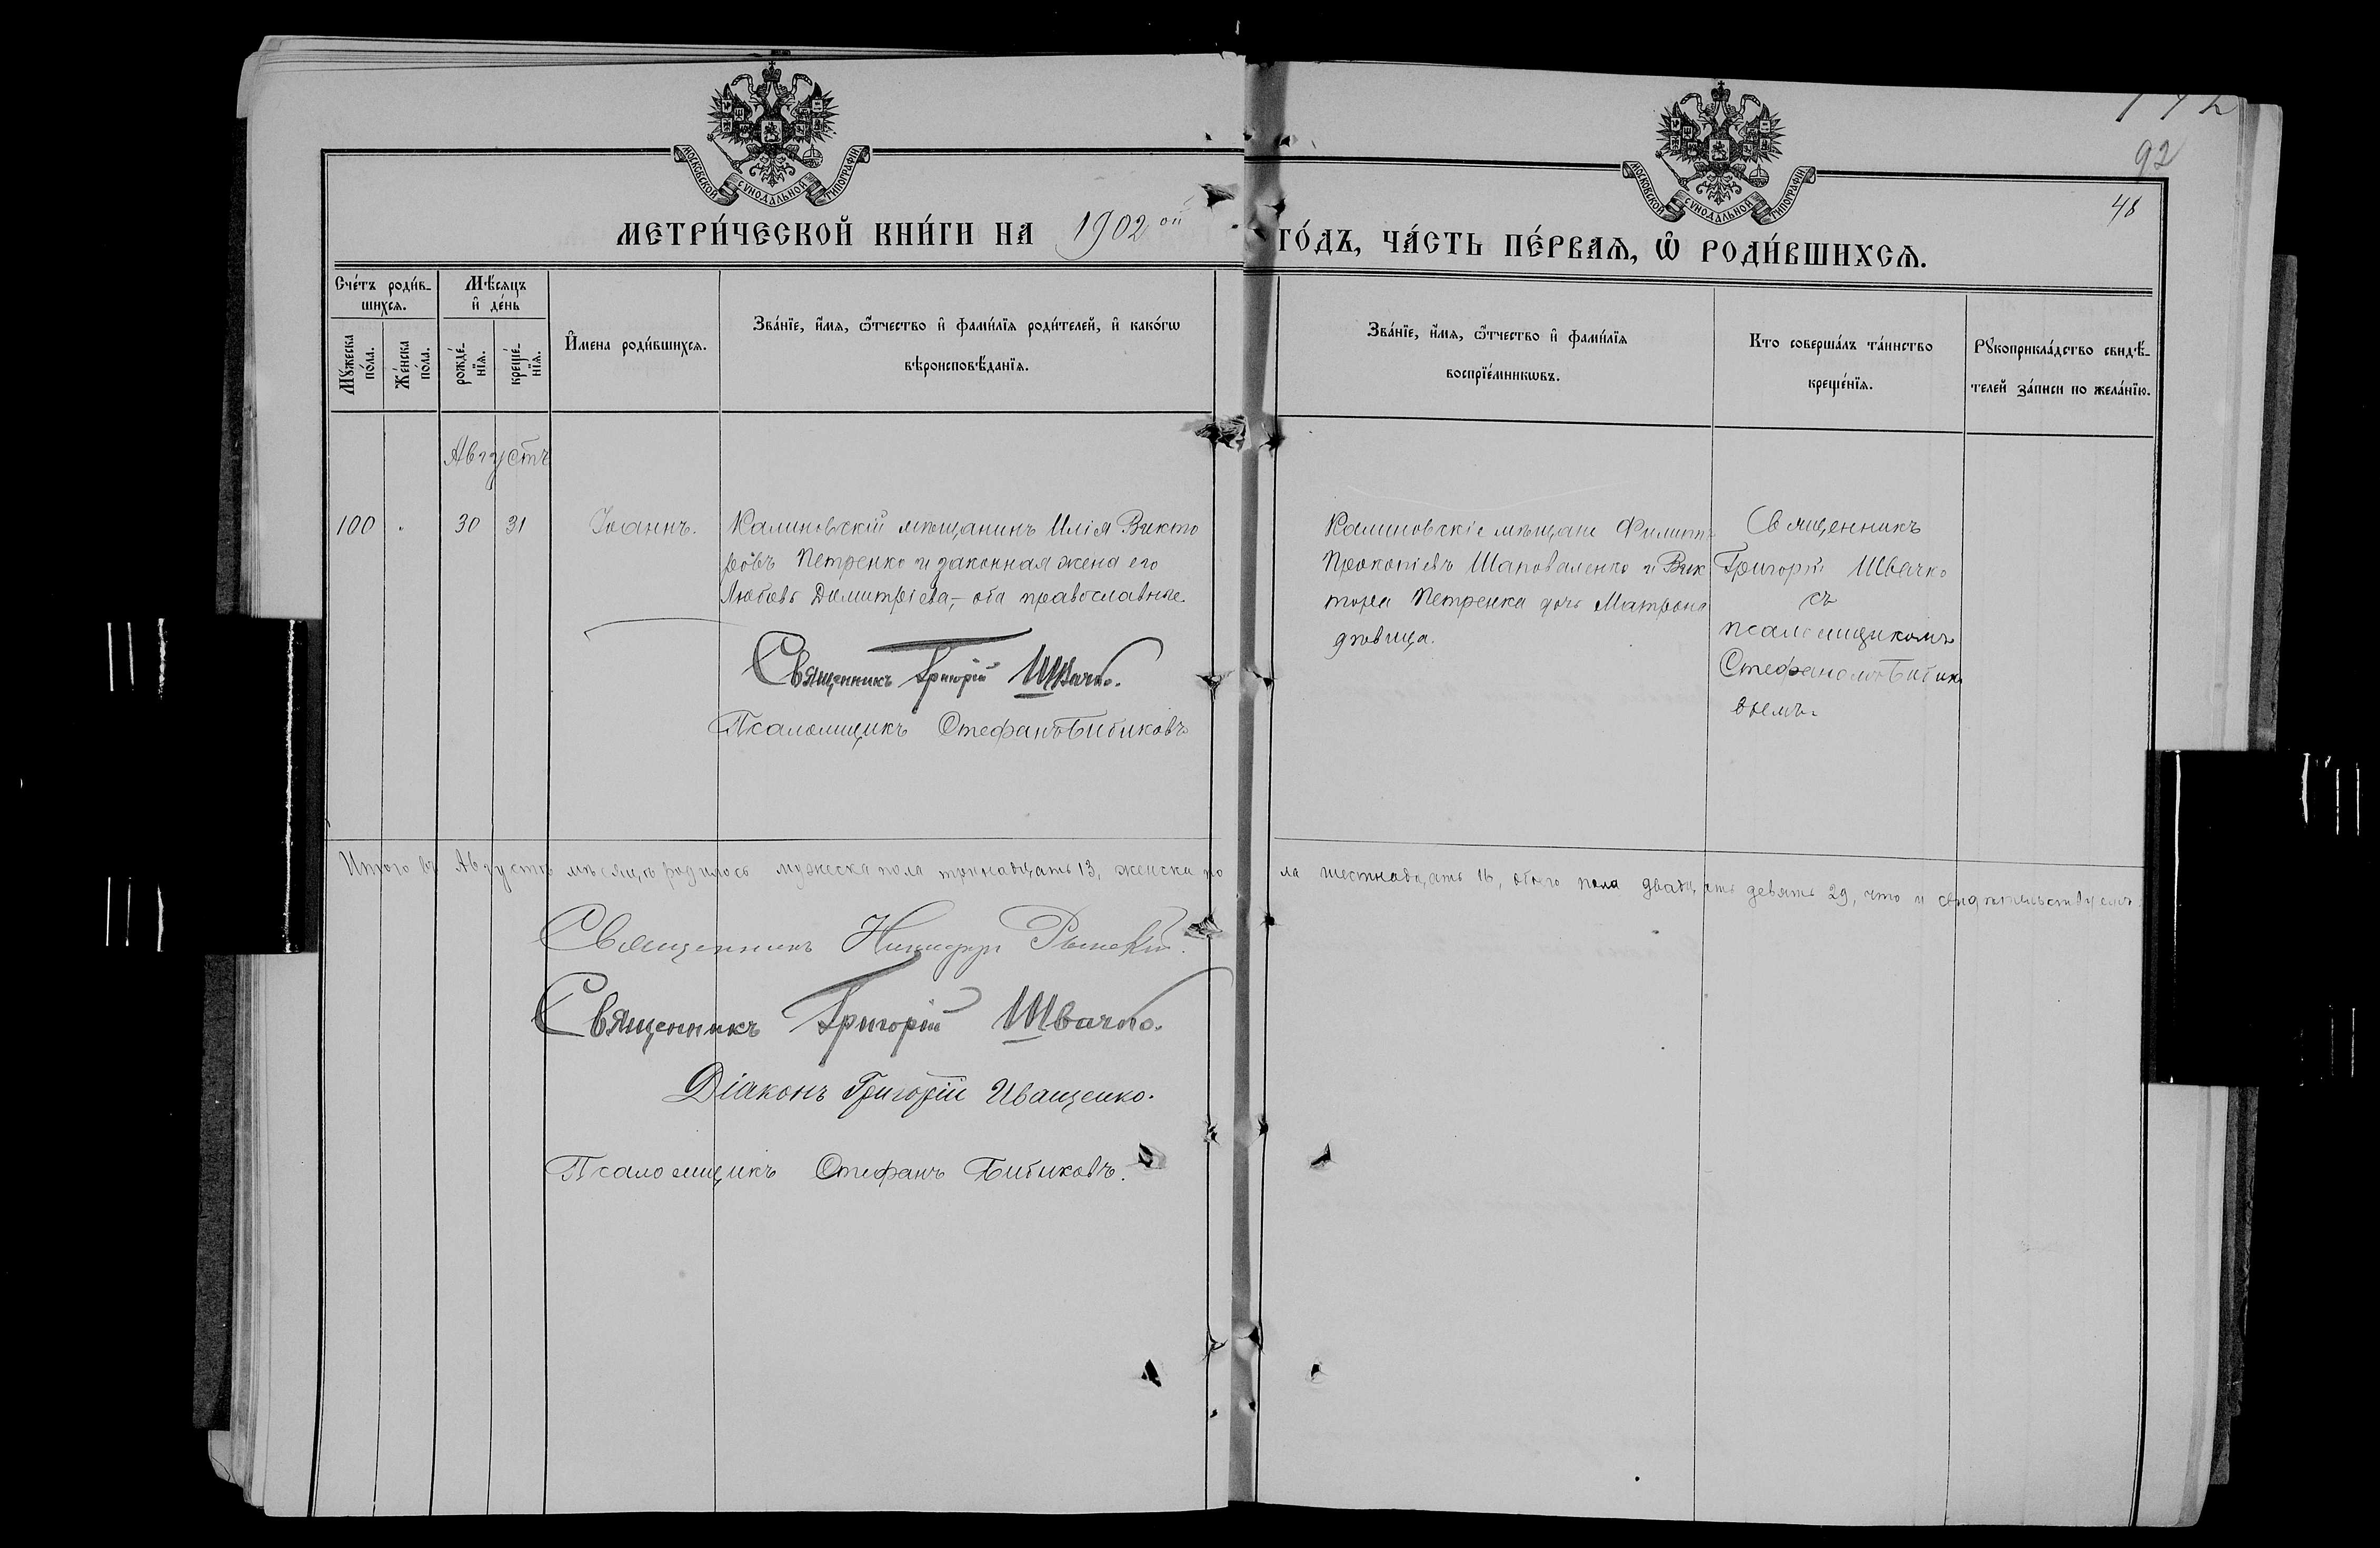 МОСКОВСКОЙ СУНОДАЛЬНОЙ ТИПОГРАФІИ
МОСКОВСКОЙ СУНОДАЛЬНОЙ ТИПОГРАФІИ
92
48
МЕТРИ́ЧЕСКОЙ КНИ́ГИ НА 1902 ой ГО́ДЪ, ЧА́СТЬ ПЕ́РВАѦ, Ѡ҆ РОДИ́ВШИХСѦ.
Сче́тъ роди́в-
шихсѧ.
Мꙋжеска
по́ла.
Же́нска
по́ла.
Мѣ́сѧцъ
и҆ де́нь
рожде́-
нїѧ.
креще́-
нїѧ.
И҆мена роди́вшихсѧ.
Зва́нїе, и҆́мѧ, ѻ҆́тчество и҆ фами́лїѧ роди́телей, и҆ како́гѡ
вѣроисповѣ́данїѧ.
Зва́нїе, и҆́мѧ, ѻ҆́тчество и҆ фами́лїѧ
воспрїе́мникѡвъ.
Кто соверша́лъ та́инство
креще́нїѧ.
Рꙋкоприкла́дство свидѣ́-
телей за́писи по жела́нїю.
Августъ
100 " 30 31 Іоаннъ.
Калиновскій мѣщанинъ Илія Викто
ровъ Петренко и законная жена его
Любовь Димитріева,- оба православные.
Священникъ Григорій Швачко.
Псаломщикъ Стефанъ Бибиковъ
Калиновскіе мѣщане Филиппъ
Прокопіевъ Шаповаленко и Вик
тора Петренка дочь Матрона
дѣвица.
Священникъ
Григорій Швачко
съ
псаломщикомъ
Стефаномъ Бибико
вымъ.
Итого въ Августѣ мѣсяцѣ родилось мужеска пола тринадцать 13, женска пола шестнадцать 16, обоего пола двадцать девять 29, что и свидѣтельствуемъ.
Священникъ
Священникъ Григорій Швачко.
Діаконъ Григорій Иващенко.
Псаломщикъ Стефанъ Бибиковъ.